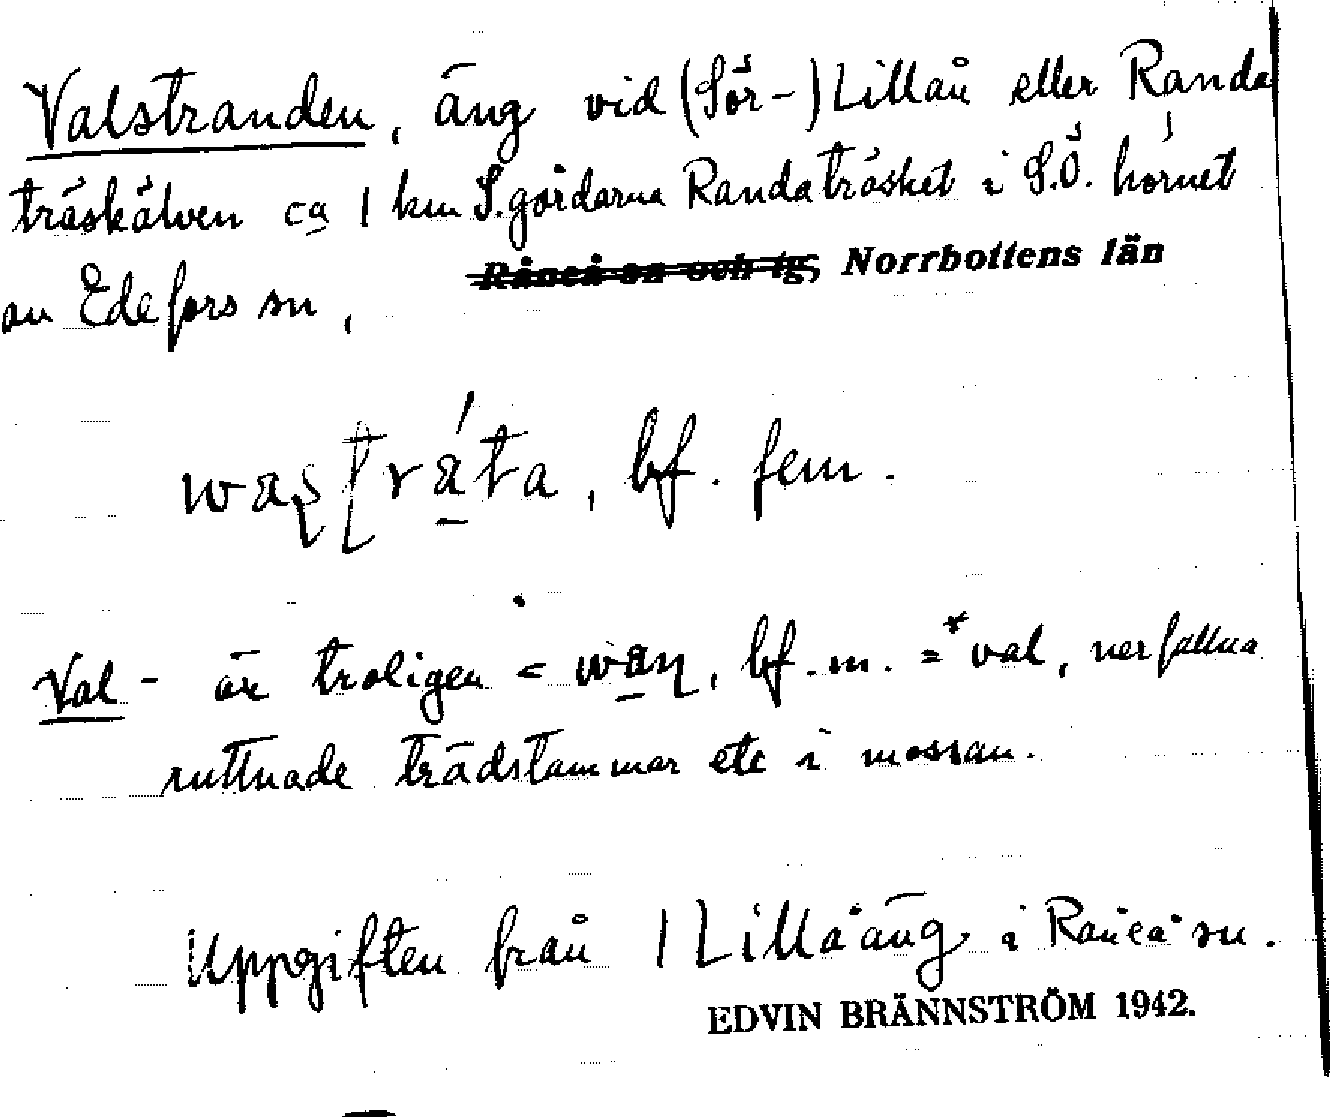 Valstranden, äng vid (Sör-) Lillån eller Randa
träskälven ca 1 km S. gårdarna Randaträsket i S.Ö. hörnet
av Edefors sn,
Råneå sn och tg, Norrbottens län
bf. fem.
Val- är troligen < bf. m. = *val, nerfallna
ruttnade trädstammar etc i mossan.
Uppgiften från 1 Lillåäng i Råneå sn.
EDVIN BRÄNNSTRÖM 1942.